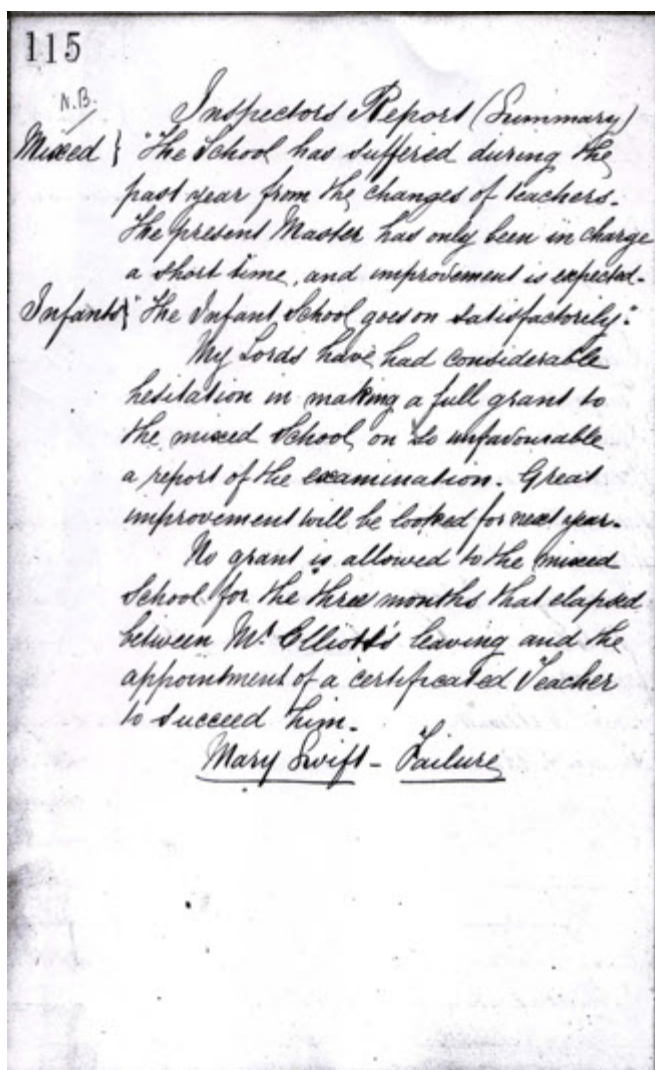 115
N.B.
Inspectors Report (Summary)
Mixed } "The School has suffered during the
past year from the changes of teachers.
The present Master has only been in charge
a short time, and improvement is expected.
Infants } "The Infant School goes on satisfactorily."
My Lords have had considerable
hesitation in making a full grant to
the mixed School on so unfavourable
a report of the examination. Great
improvement will be looked for next year.
No grant is allowed to the mixed
School for the three months that elapsed
between Mr Elliott's leaving and the
appointment of a certificated Teacher
to succeed him.
Mary Swift - Failure